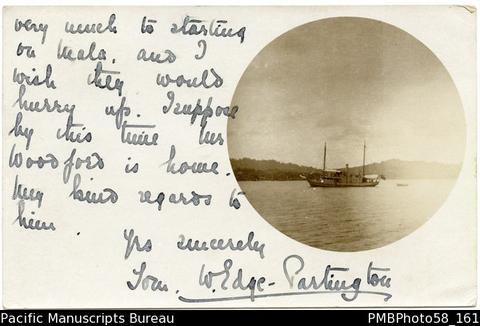 very much to starting
on Mala, and I
wish they would
hurry up. I suppose
by this time Mr
Woodford is home.
My kind regards to
him.
Yrs sincerely
Tom. W. Edge-Partington
Pacific Manuscripts Bureau
PMBPhoto58_161